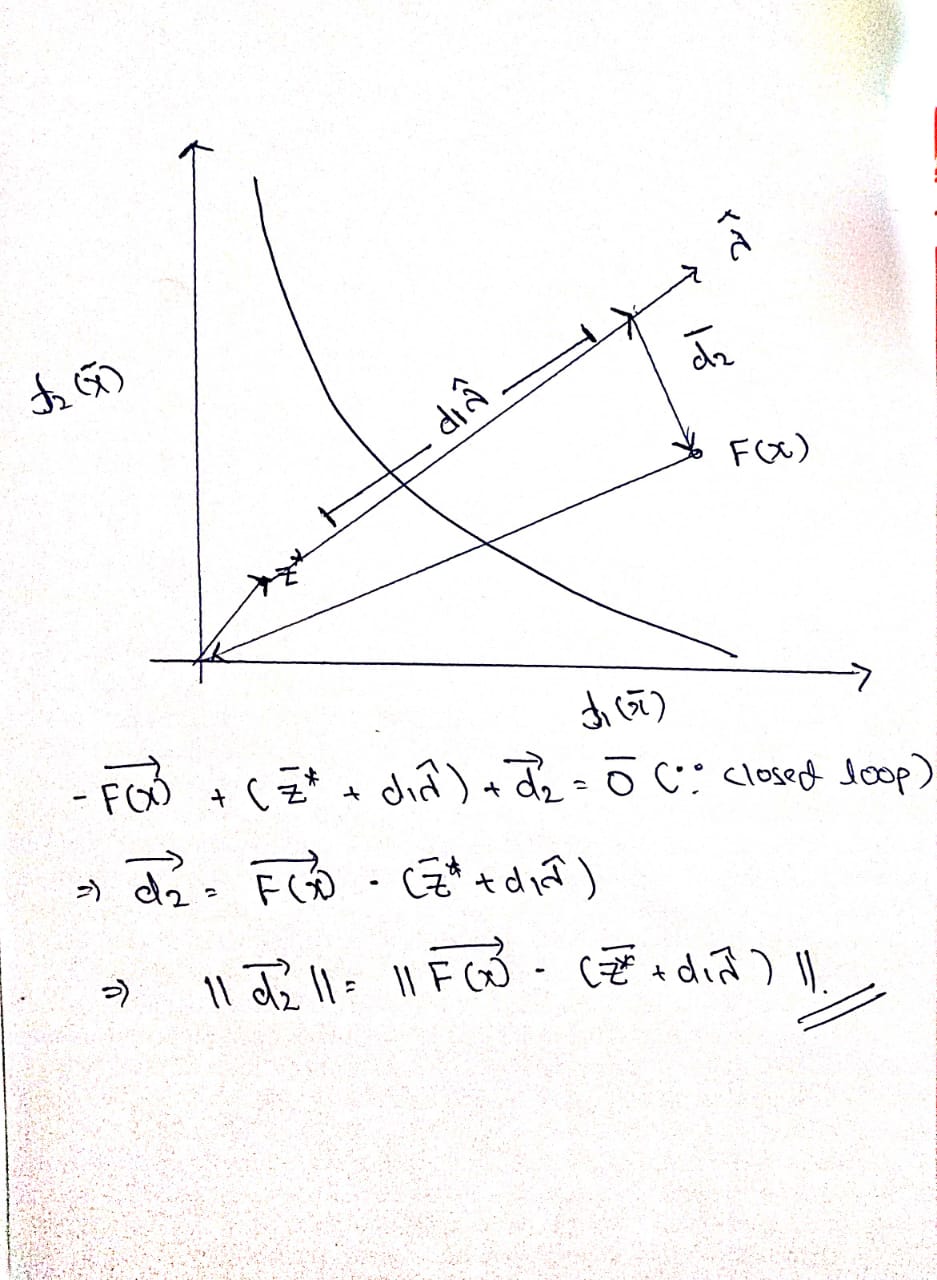 λ̂
d̄₂
f₂(x̄)
d₁λ̂
F(x)
z*
f₁(x̄)
- F(x)→ + (z̄* + d₁λ̂) + d₂→ = 0̄ (∵ closed loop)
⇒ d₂→ = F(x)→ - (z̄* + d₁λ̂)
⇒ ||d₂→|| = ||F(x)→ - (z̄* + d₁λ̂)||.